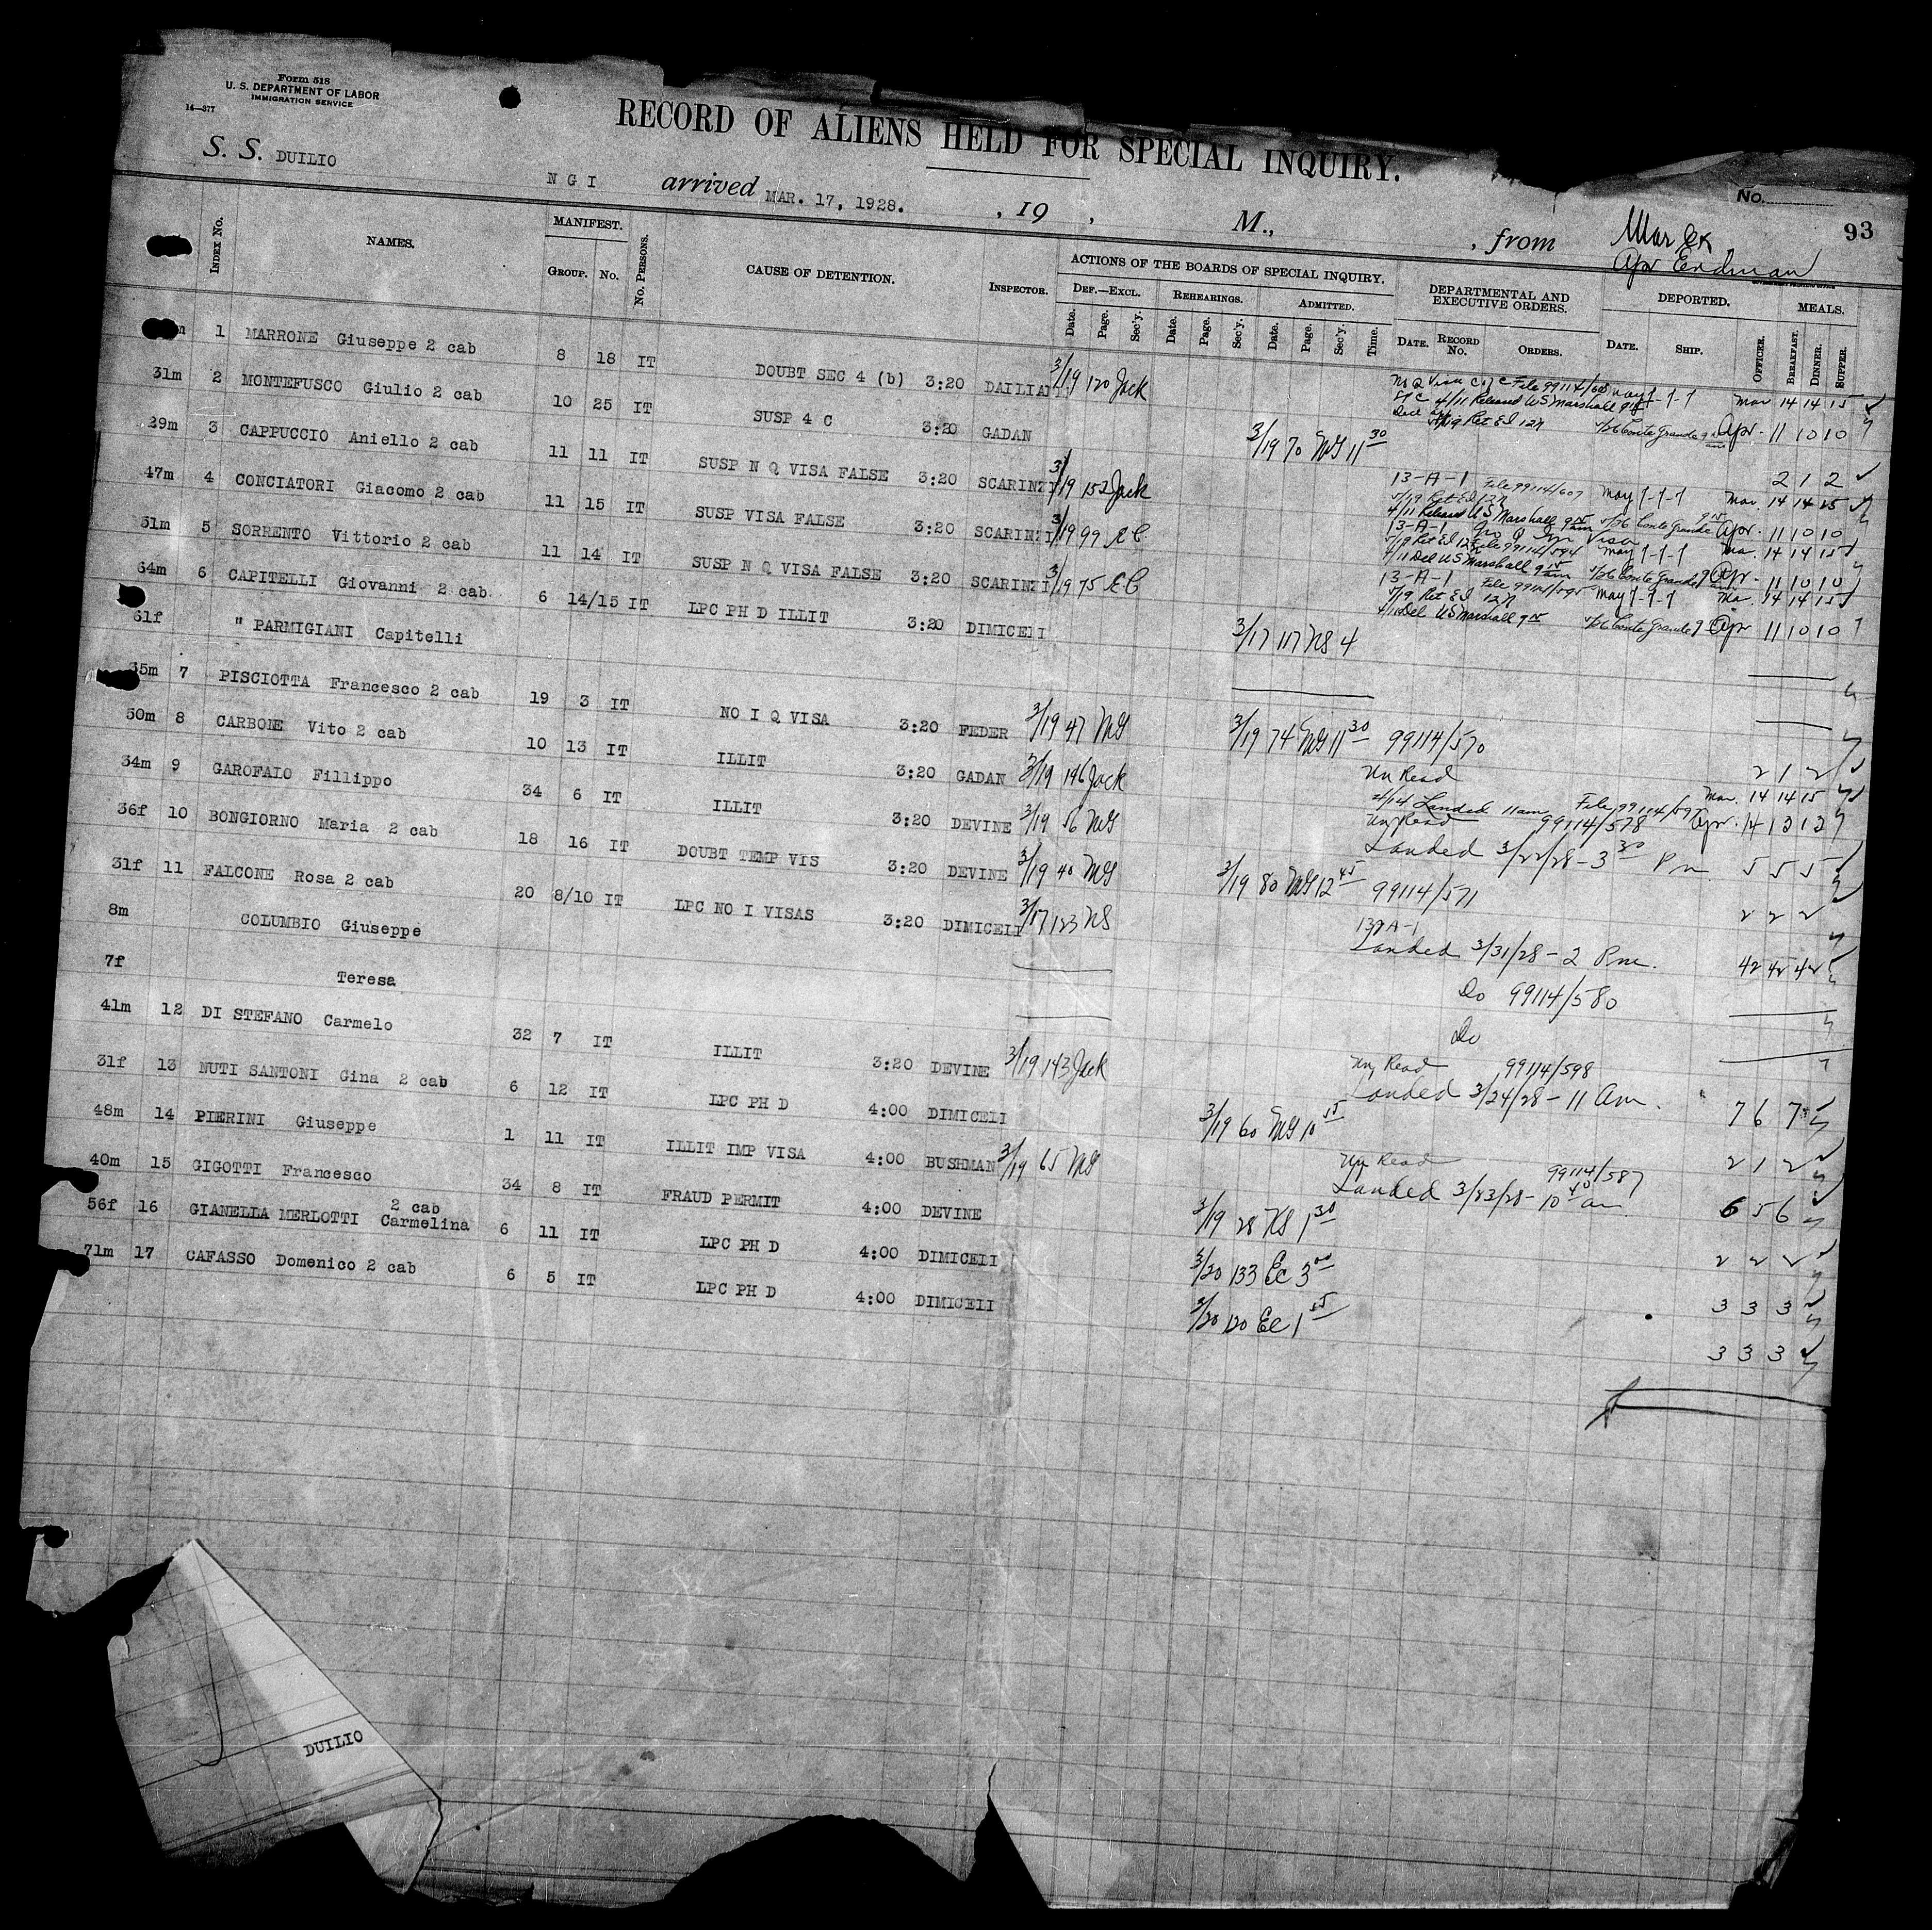 Form 518
U. S. DEPARTMENT OF LABOR
IMMIGRATION SERVICE
14—377
RECORD OF ALIENS HELD FOR SPECIAL INQUIRY.
No.
93
S. S. DUILIO N G I arrived MAR. 17, 1928. , 19 , M., , from
Apr Erdman
INDEX No. NAMES. MANIFEST. GROUP. No. No. PERSONS. CAUSE OF DETENTION. INSPECTOR. ACTIONS OF THE BOARDS OF SPECIAL INQUIRY. DEF.—EXCL. Date. Page. Sec'y. REHEARINGS. Date. Page. Sec'y. ADMITTED. Date. Page. Sec'y. Time. DEPARTMENTAL AND EXECUTIVE ORDERS. DATE. RECORD No. ORDERS. DEPORTED. DATE. SHIP. OFFICER. MEALS. BREAKFAST. DINNER. SUPPER.
1 MARRONE Giuseppe 2 cab 8 18 IT DOUBT SEC 4 (b) 3:20 3/19 120 Jack File 99114/605 May 1-1-1 Mar 14 14 15
4/11 Released US Marshall Conte Grande Apr. 11 10 10
31m 2 MONTEFUSCO Giulio 2 cab 10 25 IT SUSP 4 C 3:20 GADAN 3/19 70 MG 11 30 2 1 2
29m 3 CAPPUCCIO Aniello 2 cab 11 11 IT SUSP N Q VISA FALSE 3:20 SCARINZI 3/19 152 Jack 13-A-1 File 99114/607 May 1-1-1 Mar. 14 14 15
4/11 Released US Marshall 9 15 am Conte Grande Apr. 11 10 10
47m 4 CONCIATORI Giacomo 2 cab 11 15 IT SUSP VISA FALSE 3:20 SCARINZI 3/19 99 EC 13-A-1 No Q Visa File 99114/594 May 1-1-1 Ma. 14 14 15
4/11 Del US Marshall 9 15 am Conte Grande Apr. 11 10 10
31m 5 SORRENTO Vittorio 2 cab 11 14 IT SUSP N Q VISA FALSE 3:20 SCARINZI 3/19 75 EC 13-A-1 File 99114/595 May 1-1-1 Ma. 14 14 15
4/11 Del US Marshall 9 15 Conte Grande Apr 11 10 10
64m 6 CAPITELLI Giovanni 2 cab 6 14/15 IT LPC PH D ILLIT 3:20 DIMICELI 3/17 117 NS 4
61f " PARMIGIANI Capitelli
35m 7 PISCIOTTA Francesco 2 cab 19 3 IT NO I Q VISA 3:20 FEDER 3/19 47 MG 3/19 74 MG 11 30 99114/570 2 1 2
50m 8 CARBONE Vito 2 cab 10 13 IT ILLIT 3:20 GADAN 3/19 146 Jack Un Read Mar. 14 14 15
4/14 Landed 11 am File 99114/597 Apr. 14 13 13
34m 9 GAROFALO Fillippo 34 6 IT ILLIT 3:20 DEVINE 3/19 56 MG Un Read 99114/578
Landed 3/22/28 - 3 30 Pm 5 5 5
36f 10 BONGIORNO Maria 2 cab 18 16 IT DOUBT TEMP VIS 3:20 DEVINE 3/19 40 MG 3/19 80 MG 12 45 99114/571 2 2 2
31f 11 FALCONE Rosa 2 cab 20 8/10 IT LPC NO I VISAS 3:20 DIMICELI 3/17 123 NS
Landed 3/31/28 - 2 Pm. 42 42 42
8m COLUMBIO Giuseppe Do 99114/580
7f Teresa Do
41m 12 DI STEFANO Carmelo 32 7 IT ILLIT 3:20 DEVINE 3/19 143 Jack Un Read 99114/598
Landed 3/24/28 - 11 Am. 7 6 7
31f 13 NUTI SANTONI Gina 2 cab 6 12 IT LPC PH D 4:00 DIMICELI 3/19 60 MG 10 55 2 1 2
48m 14 PIERINI Giuseppe 1 11 IT ILLIT IMP VISA 4:00 BUSHMAN 3/19 65 MG Un Read 99114/587
Landed 3/23/28 - 10 40 am 6 5 6
40m 15 GIGOTTI Francesco 34 8 IT FRAUD PERMIT 4:00 DEVINE 3/19 28 KS 1 30 2 2 2
56f 16 GIANELLA MERLOTTI 2 cab Carmelina 6 11 IT LPC PH D 4:00 DIMICELI 3/20 133 EC 3 00 3 3 3
71m 17 CAFASSO Domenico 2 cab 6 5 IT LPC PH D 4:00 DIMICELI 3/20 120 EC 1 3 3 3
DUILIO